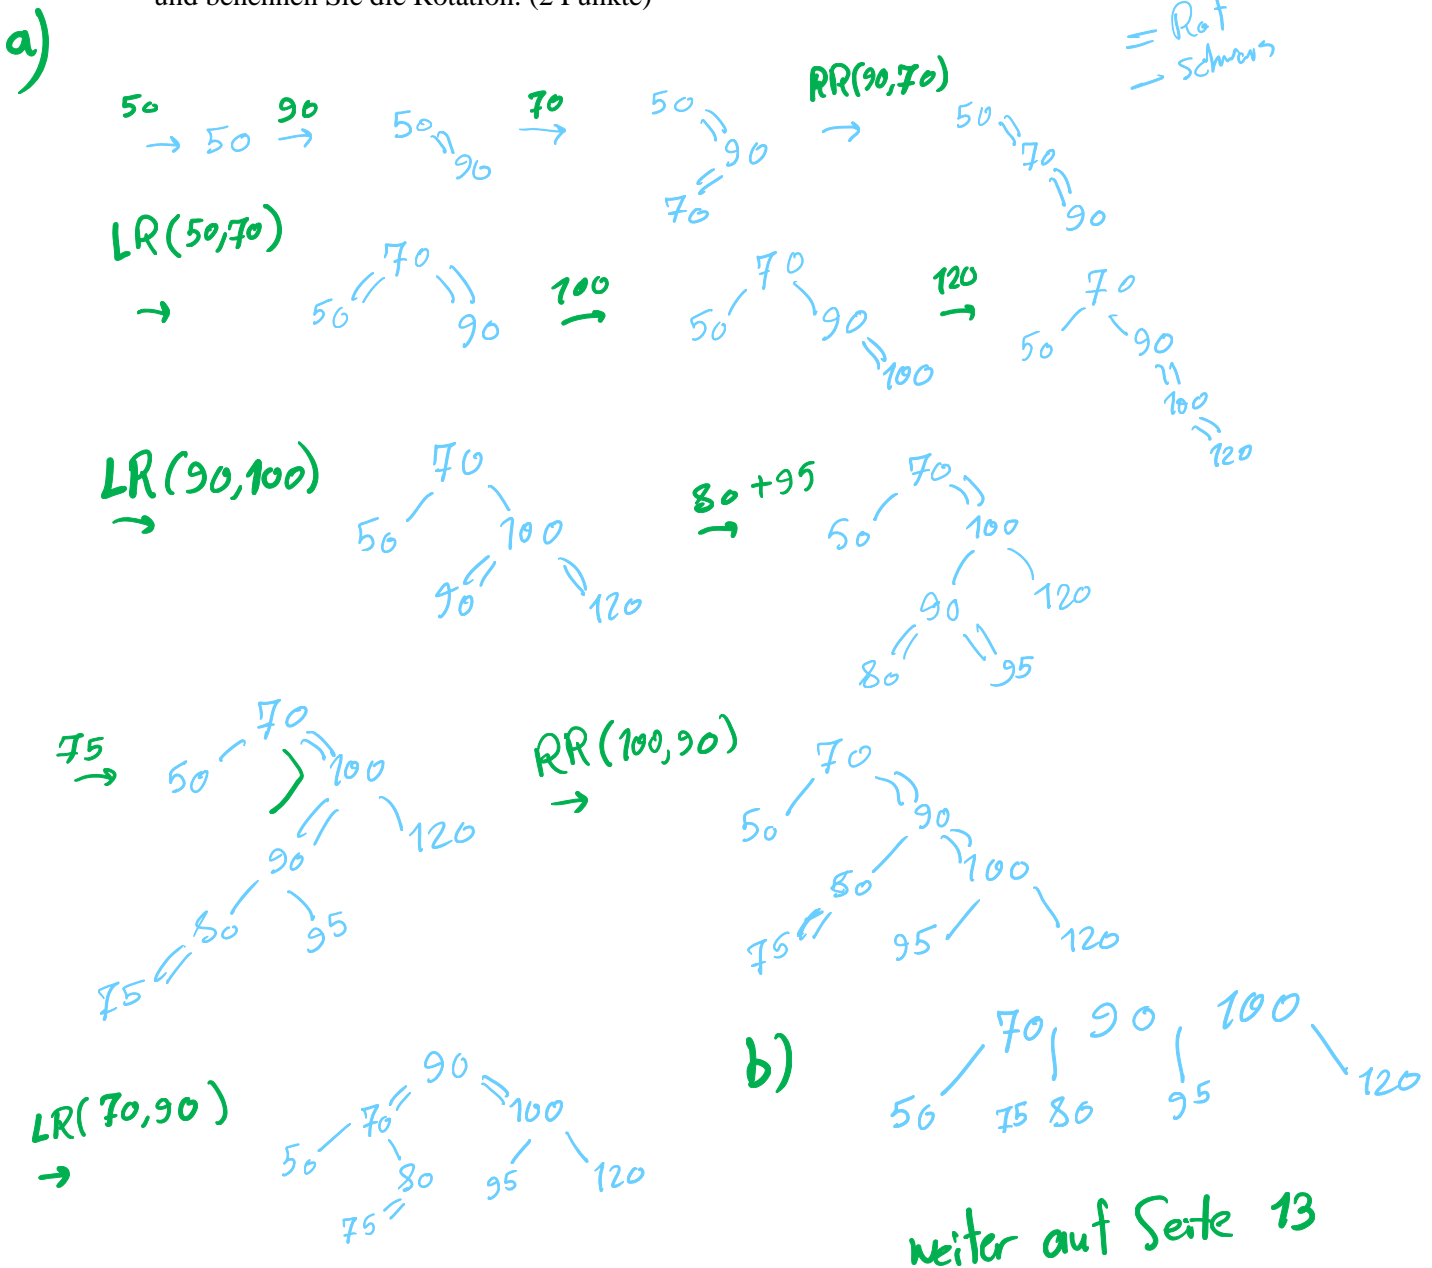 und benennen Sie die Rotation. (2 Punkte)
= Rot
— schwarz
a)
50 → 50 90 → 50 90 70 → 50 90 70 RR(90,70) → 50 70 90
LR(50,70) → 70 50 90 100 → 70 50 90 100 120 → 70 50 90 100 120
LR(90,100) → 70 50 100 90 120 80 +95 → 70 50 100 90 120 80 95
75 → 70 50 100 90 120 80 95 75 RR(100,90) → 70 50 90 80 100 75 95 120
LR(70,90) → 90 70 100 50 80 95 120 75
b) 70 90 100
50 75 80 95 120
weiter auf Seite 13